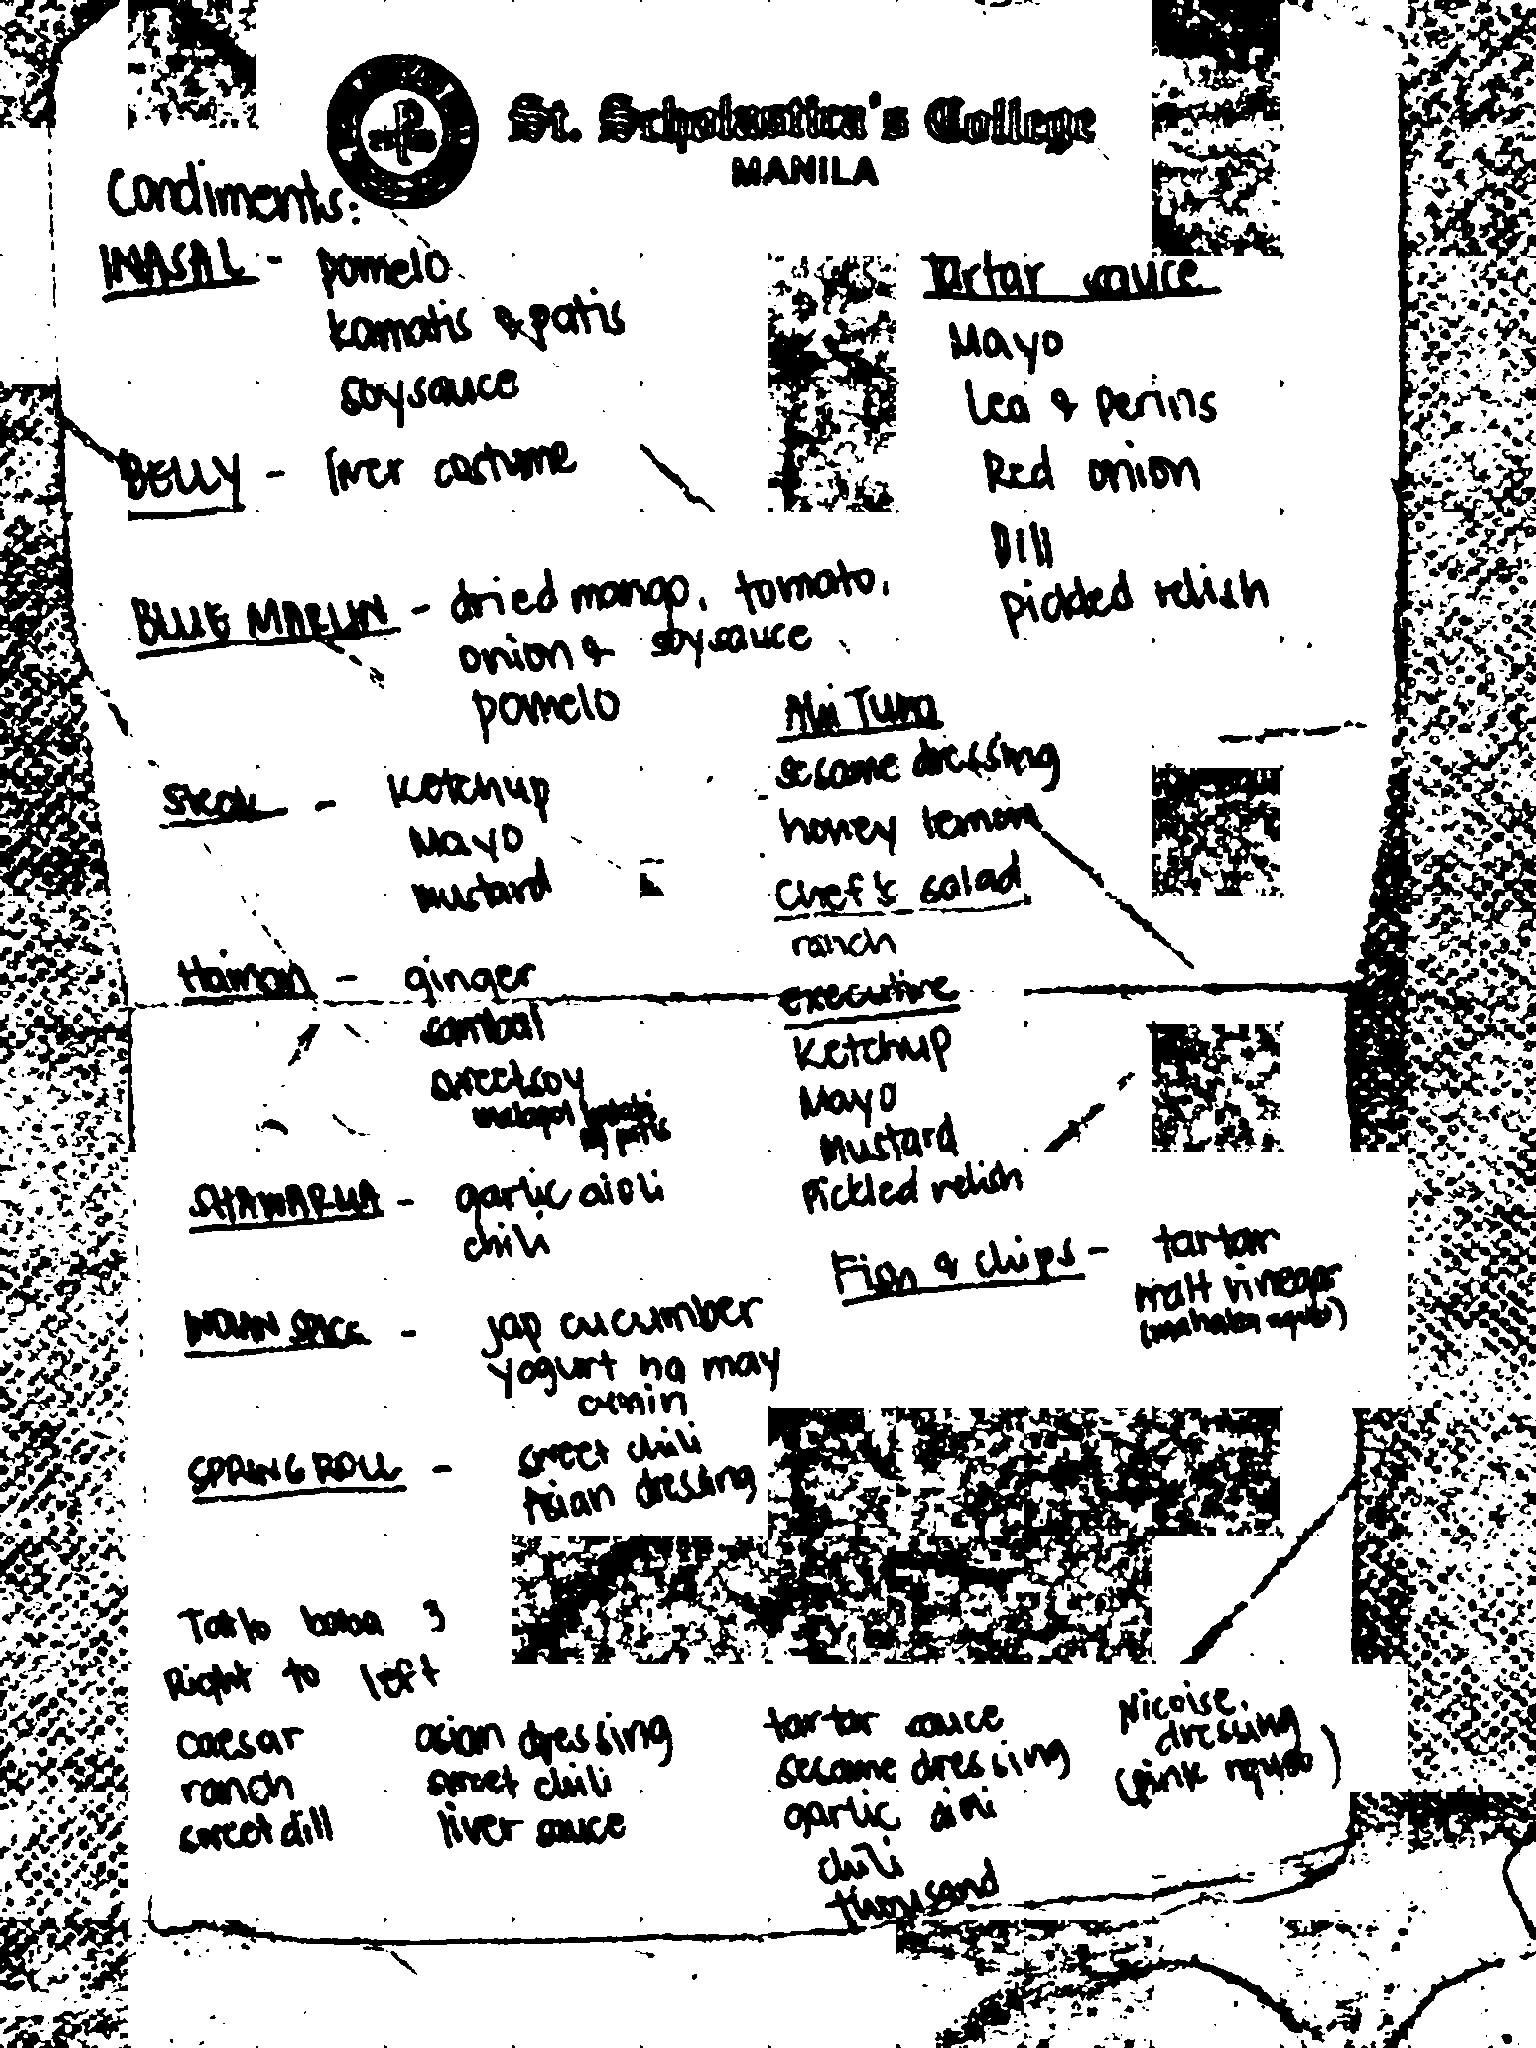 St. Scholastica's College
MANILA
Condiments:
INASAL - pomelo
kamatis & patis
soysauce
BELLY - liver costume
BLUE MARLIN - dried mango, tomato,
onion & soysauce
pomelo
Steak - Ketchup
Mayo
mustard
Hainan - ginger
sambal
sweetsoy
malapot
ng patis
SHAWARMA - garlic aioli
chili
INDIAN SPICE - jap cucumber
yogurt na may
cumin
SPRING ROLL - sweet chili
Asian dressing
Tartar sauce
Mayo
Lea & perins
Red onion
Dill
pickled relish
Ahi Tuna
sesame dressing
honey lemon
Chef's salad
ranch
executive
Ketchup
Mayo
Mustard
Pickled relish
Fish & chips - tartar
malt vinegar
Tatlo baba 3
Right to left
caesar
ranch
sweet dill
asian dressing
sweet chili
liver sauce
tartar sauce
sesame dressing
garlic aioli
chili
thousand
Nicoise,
dressing
(pink